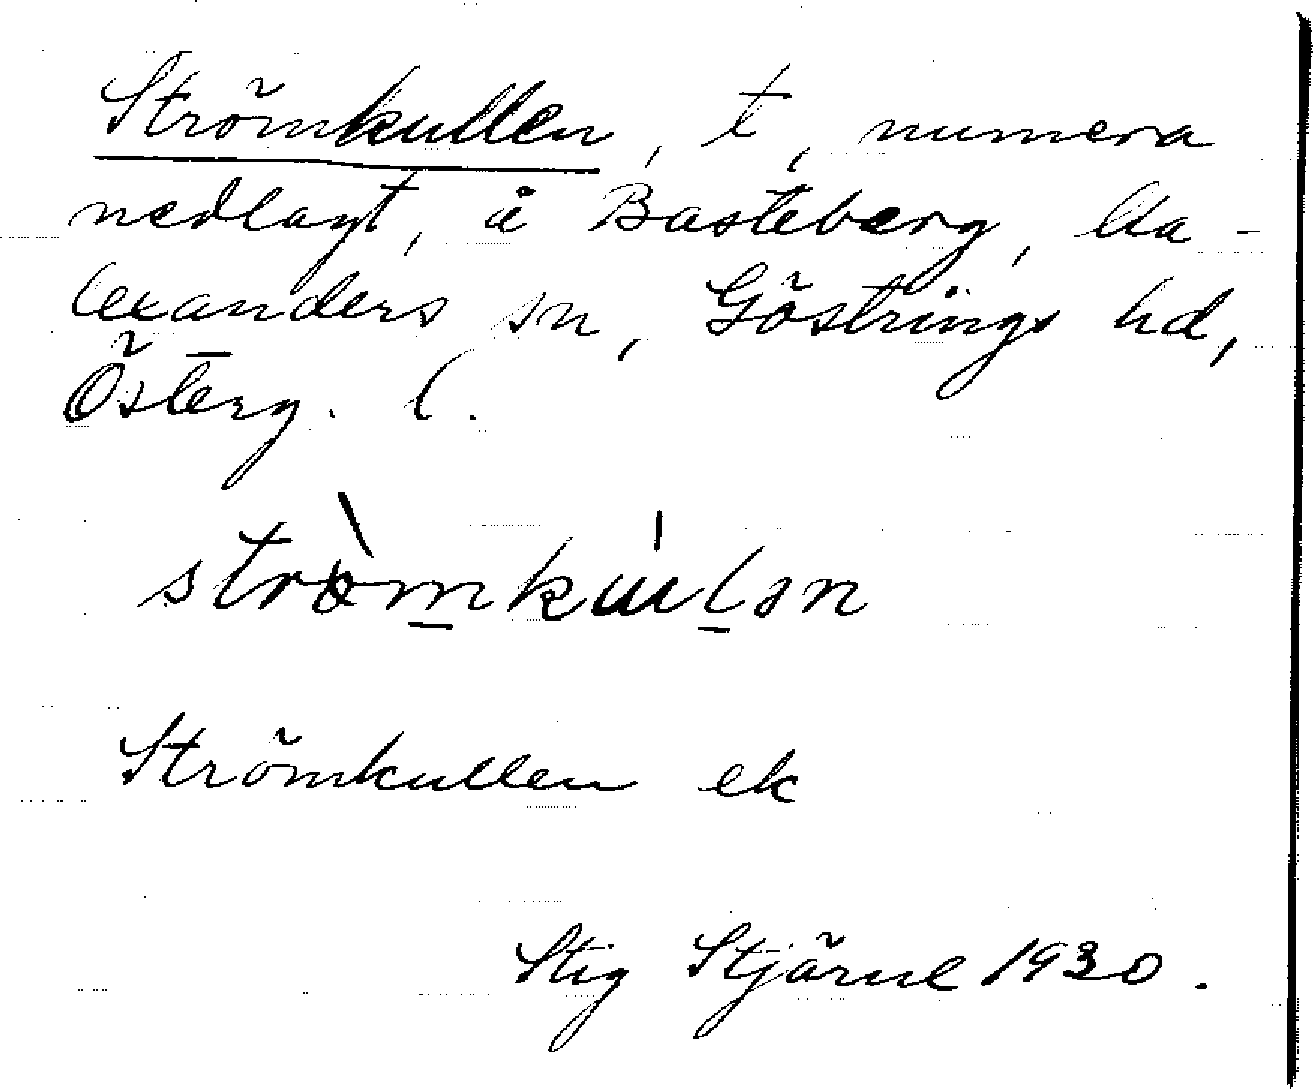 Strömkullen, t, numera
nedlagt, å Basteberg, Ka-
lexanders sn, Göstrings hd,
Österg. l.
strömkulən
Strömkullen ek
Stig Stjärne 1930.